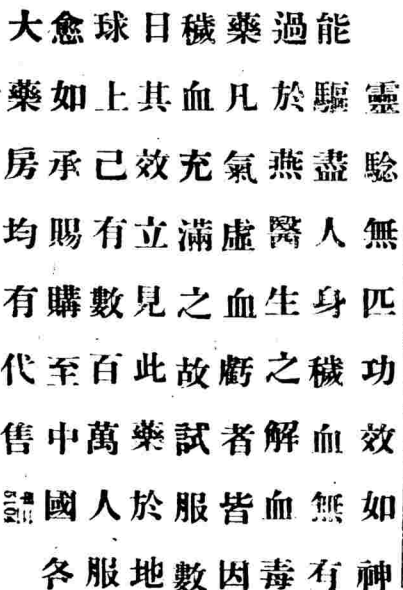 靈騐無匹功效如神
能驅盡人身穢血無有
過於燕醫生之解血毒
藥凡氣虛血虧者皆因
穢血充滿之故試服數
日其效立見此藥於地
球上己有數百萬人服
愈如承賜購至中國各
大藥房均有代售